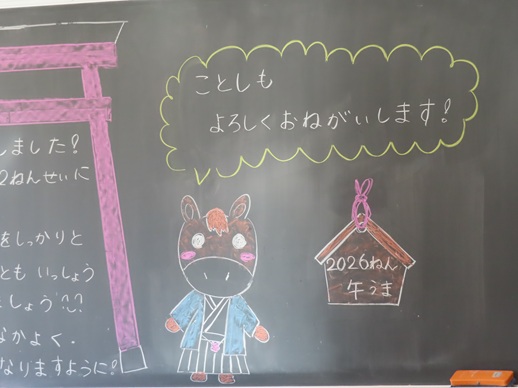 ことしも
よろしくおねがいします!
しました!
2ねんせいに
をしっかりと
とも いっしょう
ましょう
なかよく.
なりますように!
2026ねん
午うま